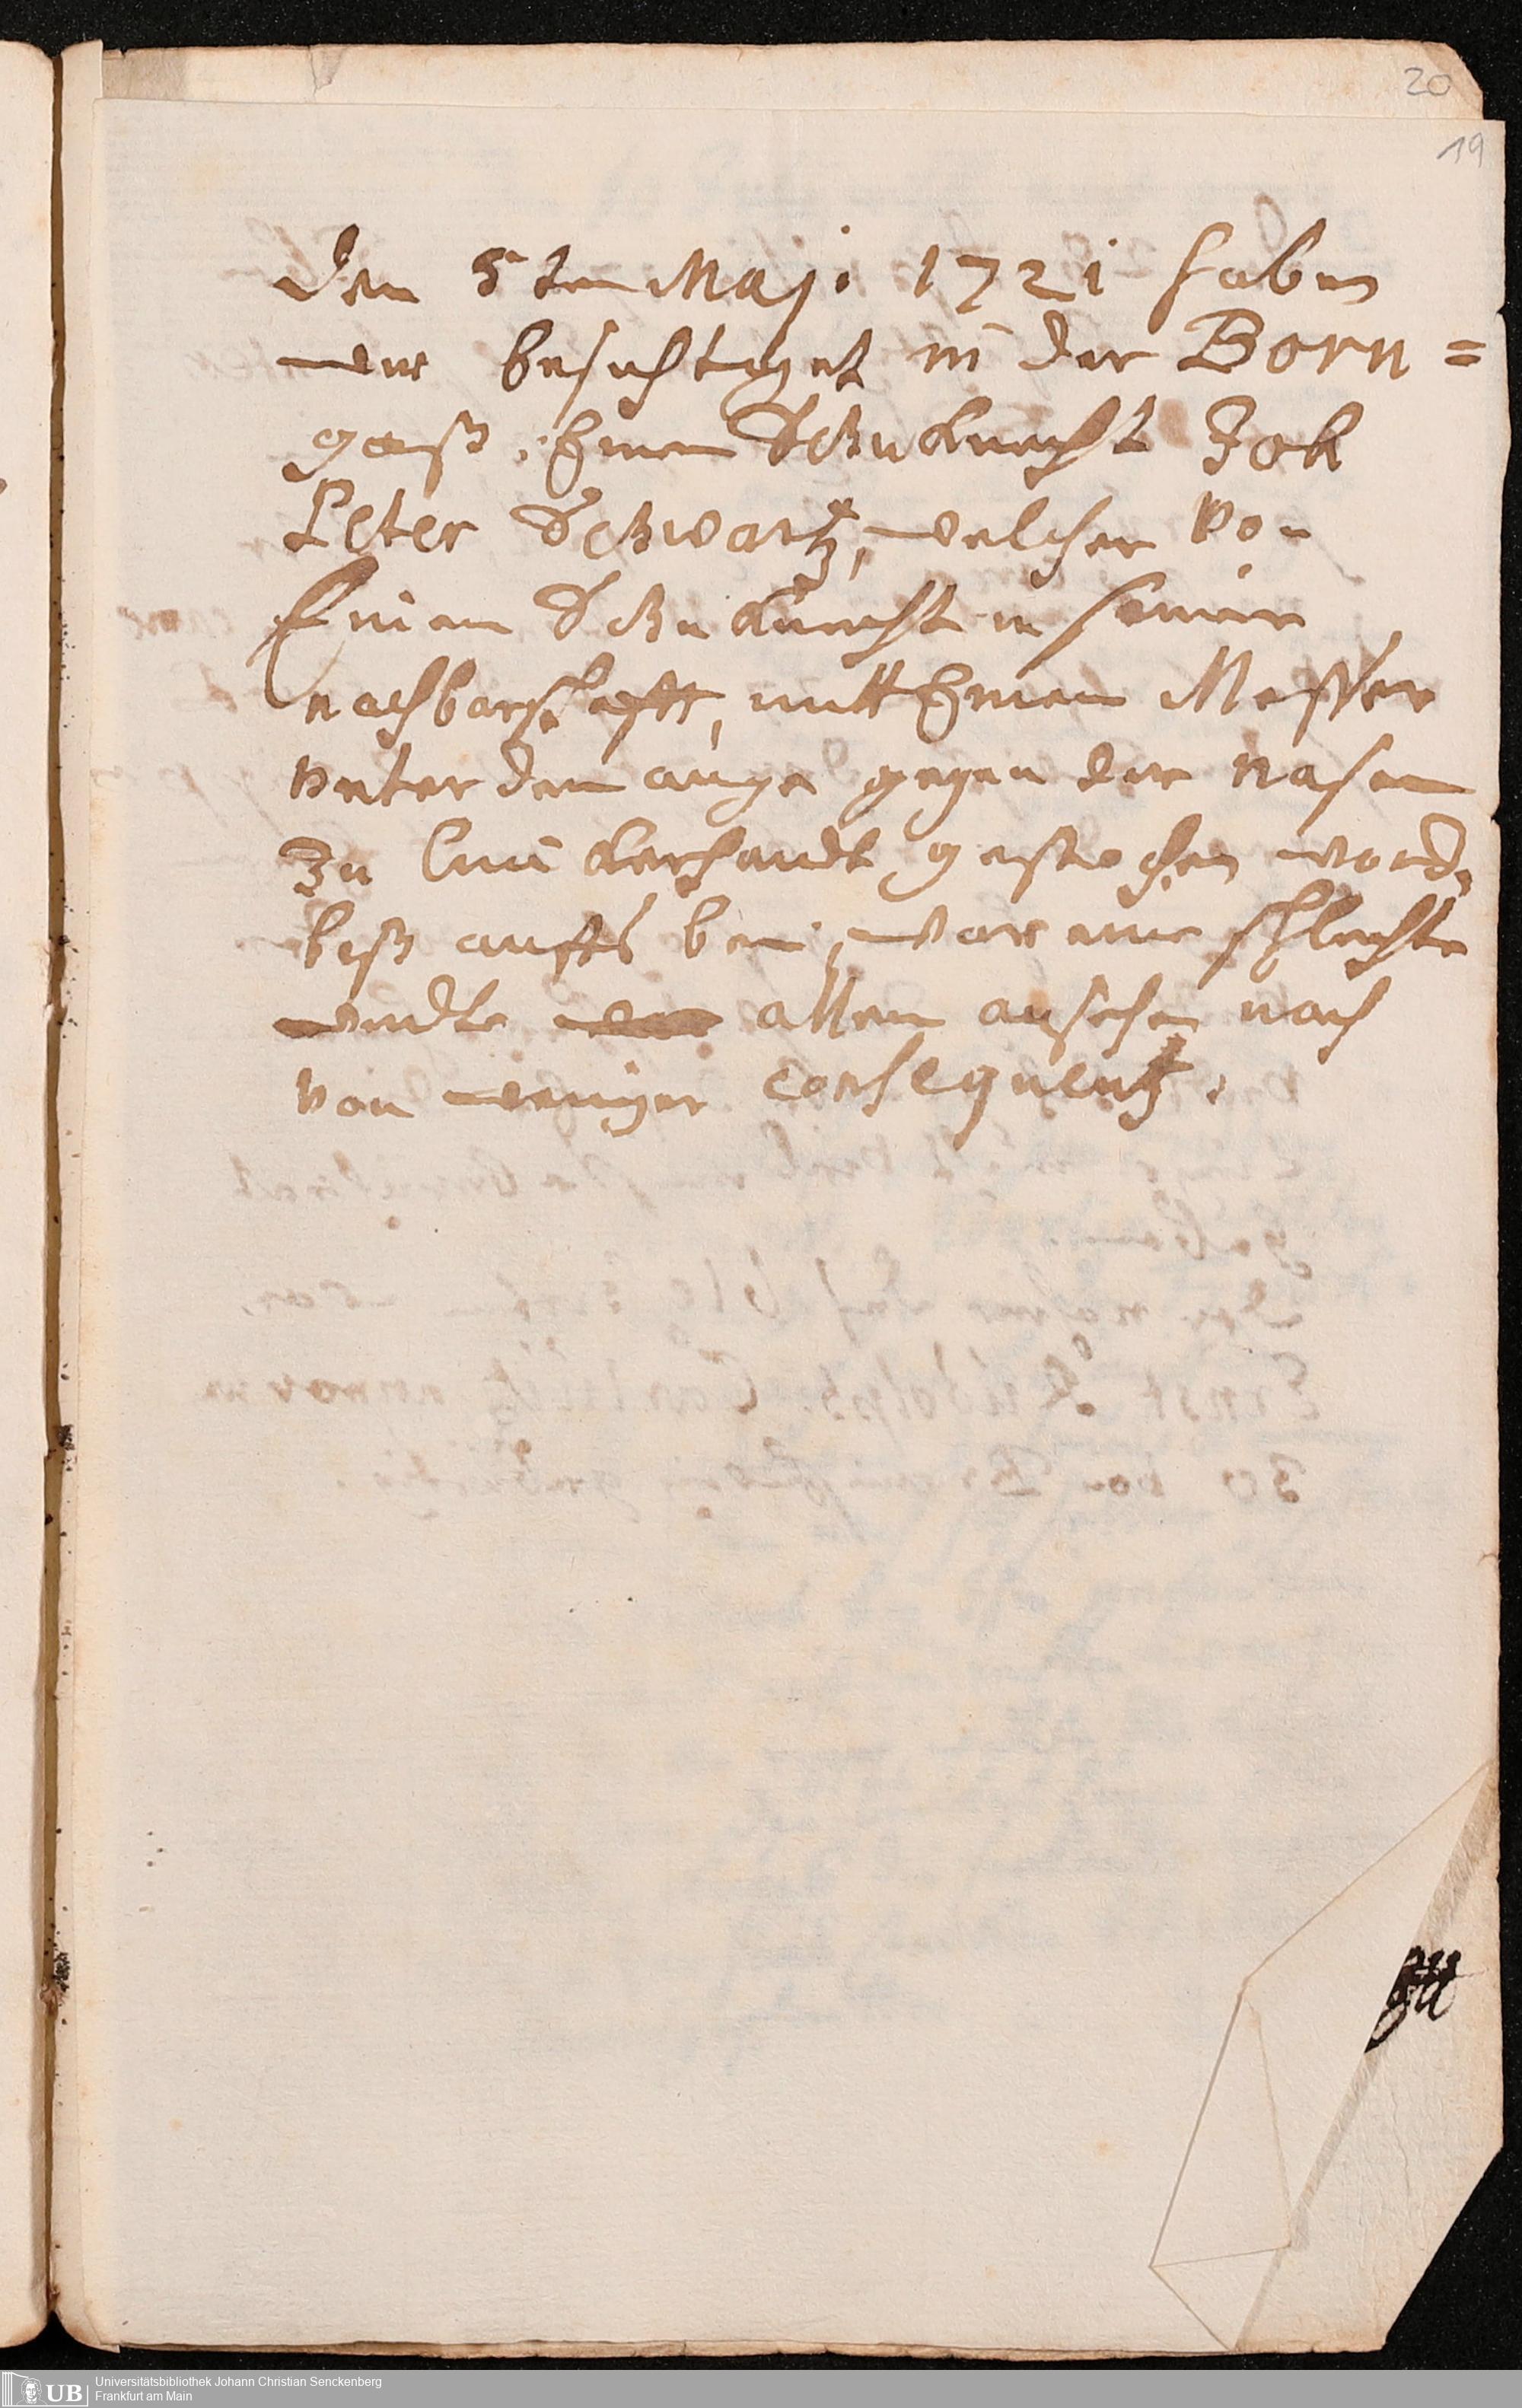 20
19
den 5ten Maji 1721 haben
wir besichtiget in der Born=
gaß, Einen Schuknecht Joh
Peter Schwartz, welcher von
Einem Schuknecht in seiner
nachbarschafft, mitt Einem Messer
unter dem auge gegen der nasen
zu linckerhandt gestochen word.
biß auffs bein, war eine schlechte
wundte allem ansehen nach
von weniger consequentz.
UB
Universitätsbibliothek Johann Christian Senckenberg
Frankfurt am Main